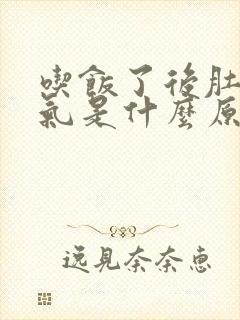 喫飯了後肚
氣是什麼原
逸見奈奈恵